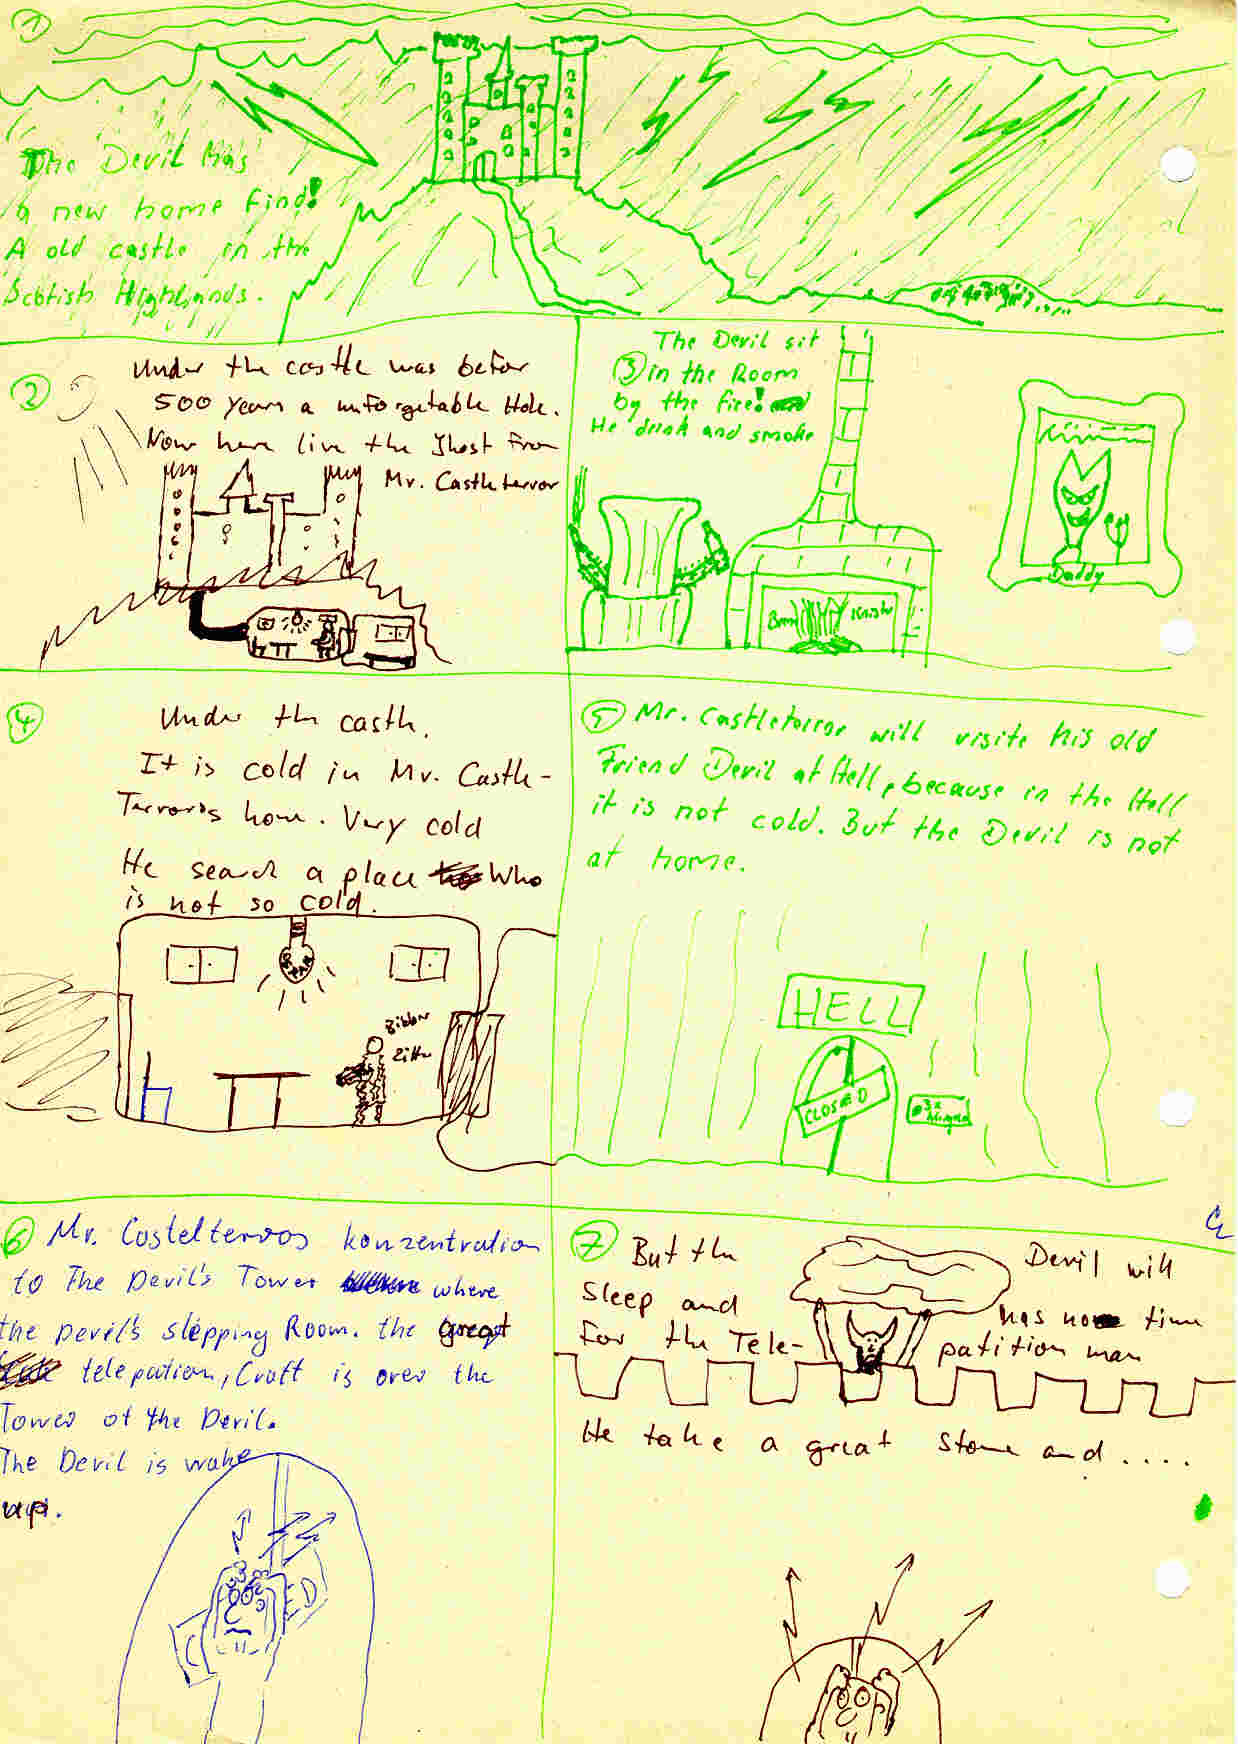 1
The Devil has
a new home find!
A old castle in the
Scotish Highlands.
2
Under the castle was befor
500 years a unforgetable Hole.
Now here live the Ghost from
Mr. Castleterror
The Devil sit
3 in the Room
by the fire!
He drink and smoke
Daddy
Knister
4
Under the castle.
It is cold in Mr. Castle-
Terrors home. Very cold
He search a place who
is not so cold.
OSRAM
Bibber
Zitter
5 Mr. Castleterror will visite his old
Friend Devil at Hell, because in the Hell
it is not cold. But the Devil is not
at home.
HELL
CLOSED
3x
klingeln
6 Mr. Castelterros konzentration
to The Devil's Tower where
the Devil's slepping Room. the great
telepation, Craft is over the
Tower of the Devil.
The Devil is wake
up.
C
ED
7 But the Devil will
Sleep and has no time
For the Tele- patition man
He take a great Stone and ....